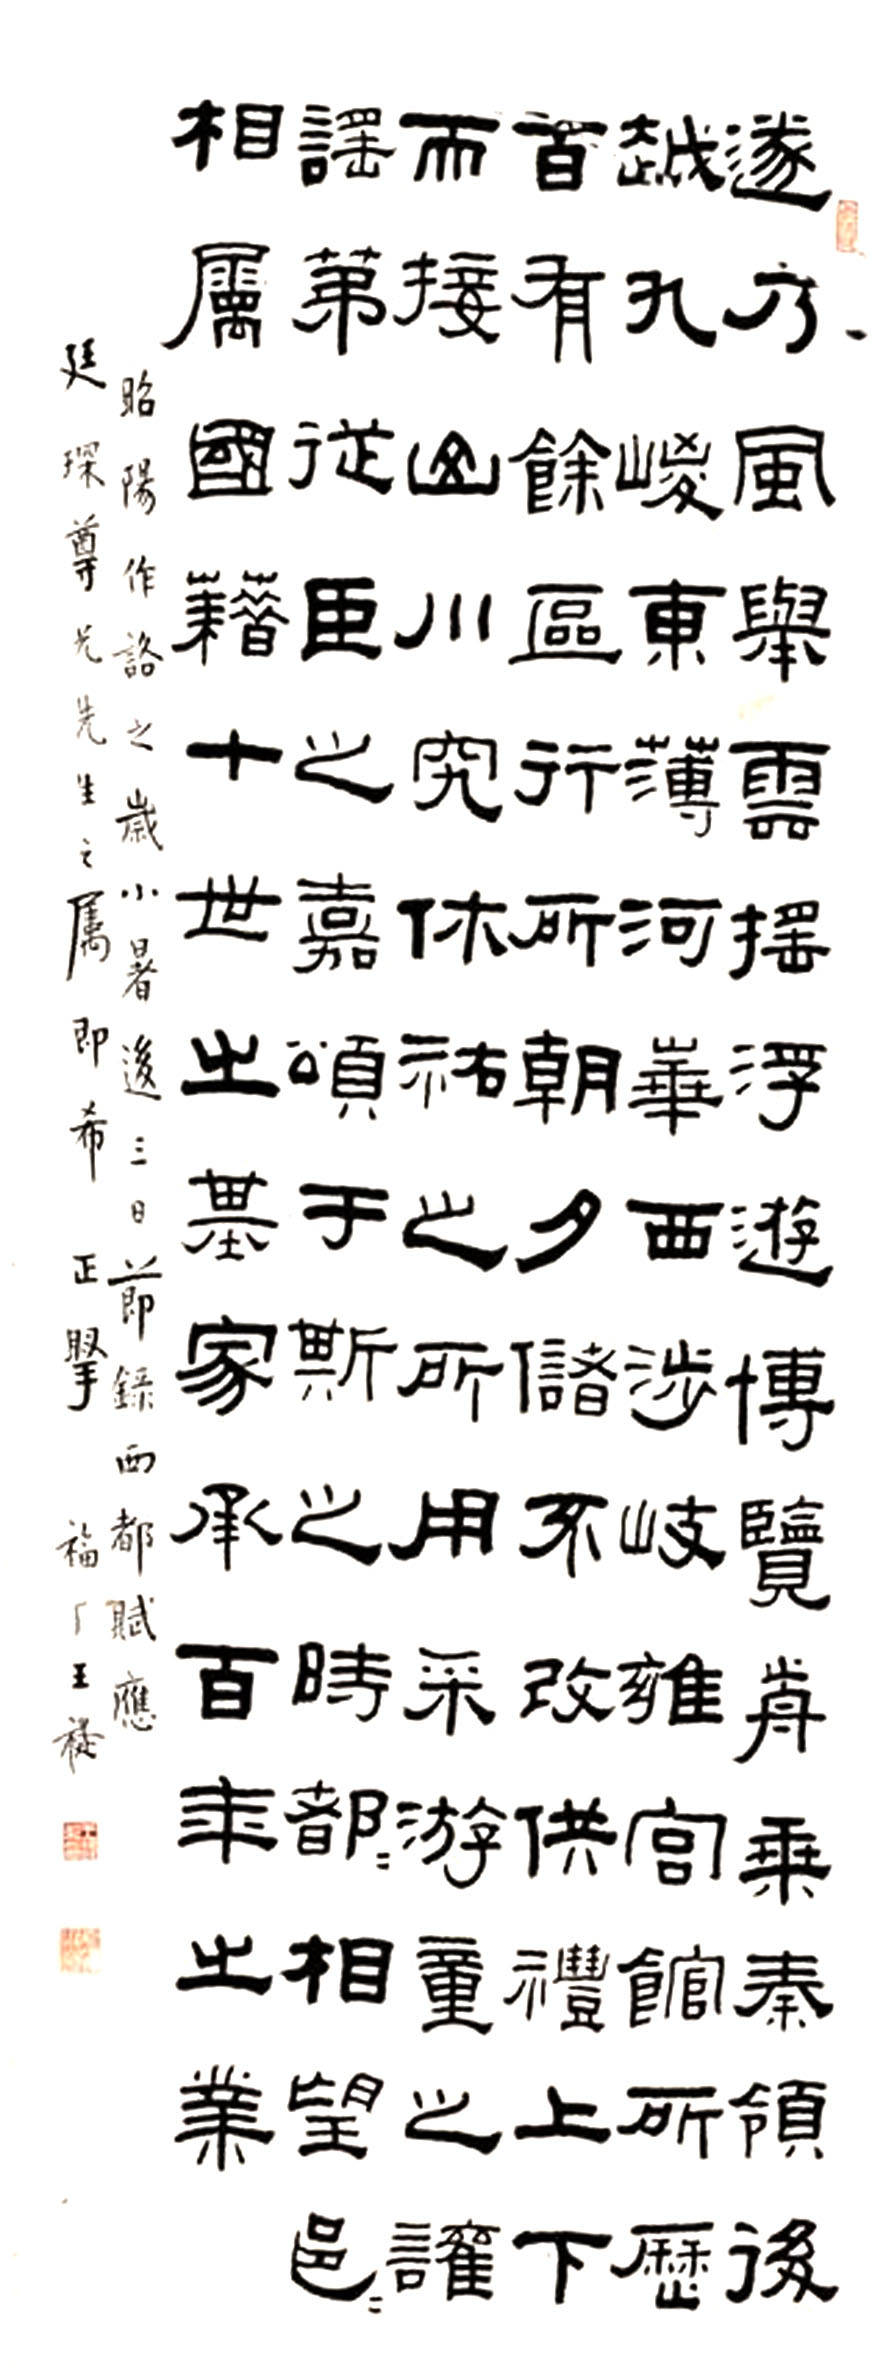 遂乃風舉雲搖浮遊博覽歬乘秦領後
越九嵕東薄河華西涉岐雍宮館所歷
百有餘區行所朝夕儲不改供禮上下
而接山川究休祐之所用采游童之讙
謠第從臣之嘉頌于斯之時都＝相望邑＝
相屬國藉十世之基家承百年之業
昭陽作詻之歲小暑後三日節錄西都賦應
廷琛尊兄先生之屬即希正掔 福厂王禔